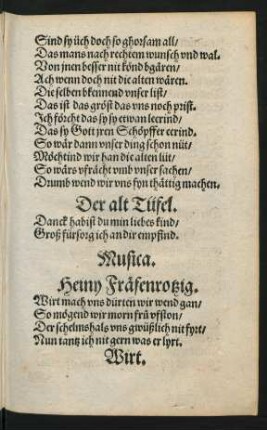 Sind sy üch doch so ghorsam all/
Das mans nach rechtem wunsch vnd wal.
Von jnen besser nit könd bgären/
Ach wenn doch nit die alten wären.
Die selben bkennend vnser list/
Das ist das gröst das vns noch prist.
Ich förcht das sy sy etwan leerind/
Das sy Gott jren Schöpffer eerind.
So wär dann vnser ding schon nüt/
Möchtind wir han die alten lüt/
So wärs vfrächt vmb vnser sachen/
Drumb wend wir vns fyn thättig machen.
Der alt Tüfel.
Danck habist du min liebes kind/
Groß fürsorg ich an dir empfind.
Musica.
Heiny Fräsenrotzig.
Wirt mach vns dürten wir wend gan/
So mögend wir morn frü vfston/
Der schelmshals vns gwüßlich nit fyrt/
Nun tantz ich nit gern was er lyrt.
Wirt.